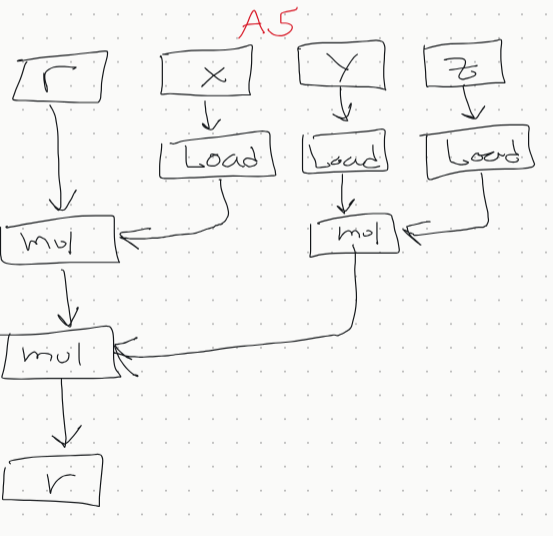 A5
r
x
Y
Z
Load
Load
Load
mul
mul
mul
r